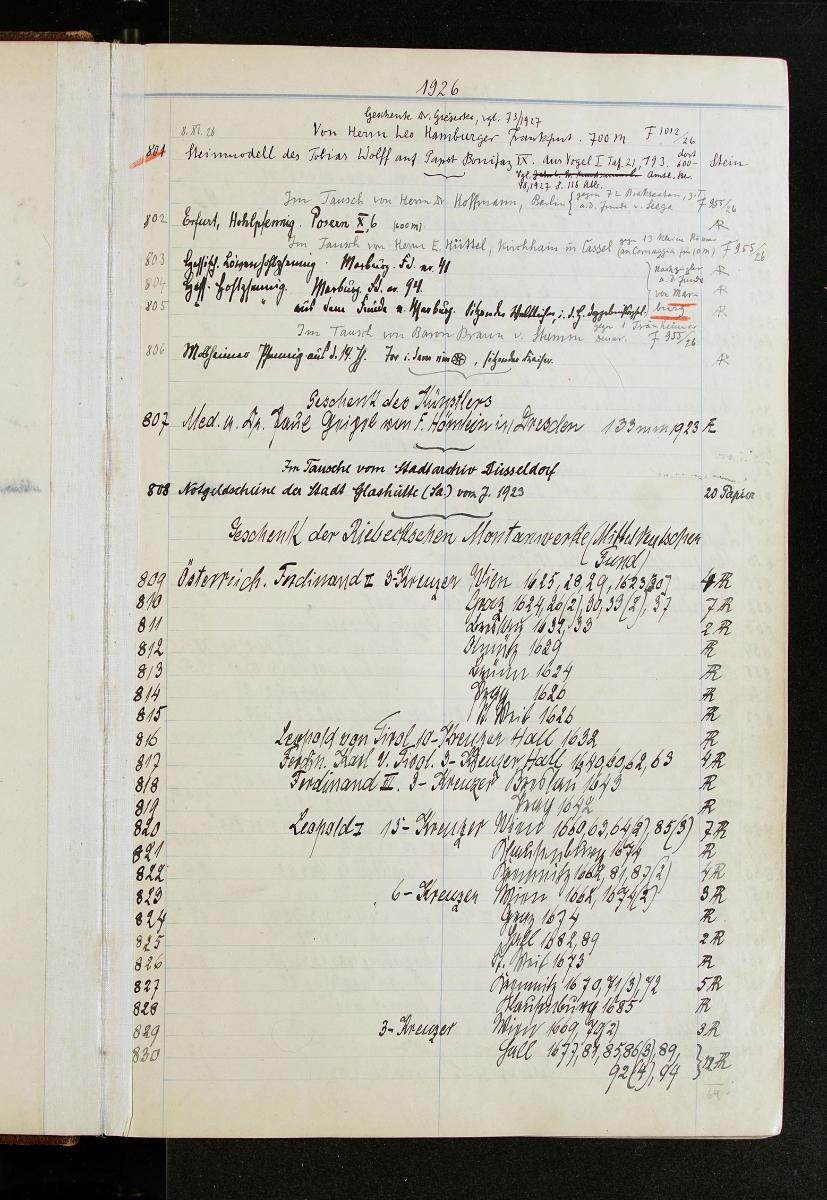 1926
Geschenk Dr. vgl. 73/1927
8. XI. 26 Von Herrn Leo Hamburger Frankfurt. 700 M F 1012/26
801 Steinmodell des Tobias Wolff auf Papst Bonifaz IX. aus Vogel I Taf. 21, 193. dort 600- Stein
vgl. Amtl. Ber.
1927 S. 116 Abb.
Im Tausch von Herrn Dr. Hoffmann, Berlin { gegen 72 Brakteaten, 3.T. F 955/26
a. d. Funde v. Seega
802 Erfurt, Hohlpfennig. Posern X, 6 (100 M) AR
Im Tausch von Herrn E. Hüttel, Kirchhain in Cassel gegen 13 kleine Römer F 955/26
803 Hessisch. Löwenhohlpfennig. Marburg. Fd. nr. 41 AR
804 Hess. Hohlpfennig. Marburg. Fd. nr. 94. AR
805 " aus dem Funde v. Marburg. Sitzender Weltlicher, i. d. H. AR
Nachzügler
a. d. Funde
von Mar-
burg
Im Tausch von Baron Braun v. Stumm gegen 1
denar. F 955/26
806 Pfennig aus d. 14. Jh. Tor i. dem ein , sitzender Kaiser. AR
Geschenk des Künstlers
807 Med. a. Dr. Paul von F. Hörnlein in Dresden 133 mm, 1923 Æ
Im Tausche vom Stadtarchiv Düsseldorf
808 Notgeldscheine der Stadt Glashütte (Sa.) vom J. 1923 20 Papier
Geschenk der Riebeckschen Montanwerke (Mitteldeutscher
Fund)
809 Österreich. Ferdinand II 3-Kreuzer Wien 1625, 28, 29, 1623(30) 4 AR
810 Graz 1624, 26(2), 30, 33(2), 37 7 AR
811 Breslau 1632, 33 2 AR
812 Olmütz 1629 AR
813 Brünn 1624 AR
814 Prag 1620 AR
815 St. Veit 1626 AR
816 Leopold von Tirol 10-Kreuzer Hall 1632 AR
817 Ferdin. Karl v. Tirol. 3-Kreuzer Hall 1640, 60, 62, 63 4 AR
818 Ferdinand III. 3-Kreuzer Breslau 1643 AR
819 Prag 1642 AR
820 Leopold I 15-Kreuzer Wien 1660, 63, 64(2), 85(3) 7 AR
821 Klausenburg 1674 AR
822 Kremnitz 1662, 81, 87(2) 4 AR
823 6-Kreuzer Wien 1662, 1674(2) 3 AR
824 Graz 1674 AR
825 Hall 1682, 89 2 AR
826 St. Veit 1673 AR
827 Kremnitz 1670, 71(3), 72 5 AR
828 Klausenburg 1685 AR
829 3-Kreuzer Wien 1669, 70(2) 3 AR
830 Hall 1677, 81, 85, 86(3), 89,
92(4), 94 } 12 AR
64